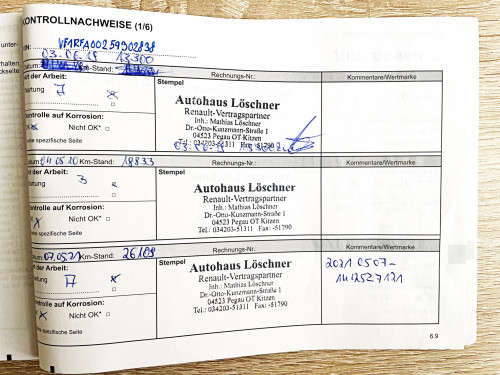 KONTROLLNACHWEISE (1/6)
unter-
rhalten.
ckseite
VIN: VF1RFA00259902828
03.06.19 13300
Datum: Km-Stand:
Art der Arbeit:
Wartung A x
Stempel
Rechnungs-Nr.:
Kommentare/Wertmarke
Autohaus Löschner
Renault-Vertragspartner
Inh.: Mathias Löschner
Dr.-Otto-Kunzmann-Straße 1
04523 Pegau OT Kitzen
Tel.: 034203-51311 Fax: -51790
03.06.19
Kontrolle auf Korrosion:
OK x Nicht OK* □
siehe spezifische Seite
Datum: 04.05.10 Km-Stand: 18833
Rechnungs-Nr.:
Kommentare/Wertmarke
Art der Arbeit:
Wartung B x
Stempel
Autohaus Löschner
Renault-Vertragspartner
Inh.: Mathias Löschner
Dr.-Otto-Kunzmann-Straße 1
04523 Pegau OT Kitzen
Tel.: 034203-51311 Fax: -51790
Kontrolle auf Korrosion:
x Nicht OK* □
siehe spezifische Seite
Datum: 07.05.21 Km-Stand: 26189
Rechnungs-Nr.:
Kommentare/Wertmarke
Art der Arbeit:
Wartung A x
Stempel
Autohaus Löschner
Renault-Vertragspartner
Inh.: Mathias Löschner
Dr.-Otto-Kunzmann-Straße 1
04523 Pegau OT Kitzen
Tel.: 034203-51311 Fax: -51790
20210507-
1412527121
Kontrolle auf Korrosion:
x Nicht OK* □
siehe spezifische Seite
6.9